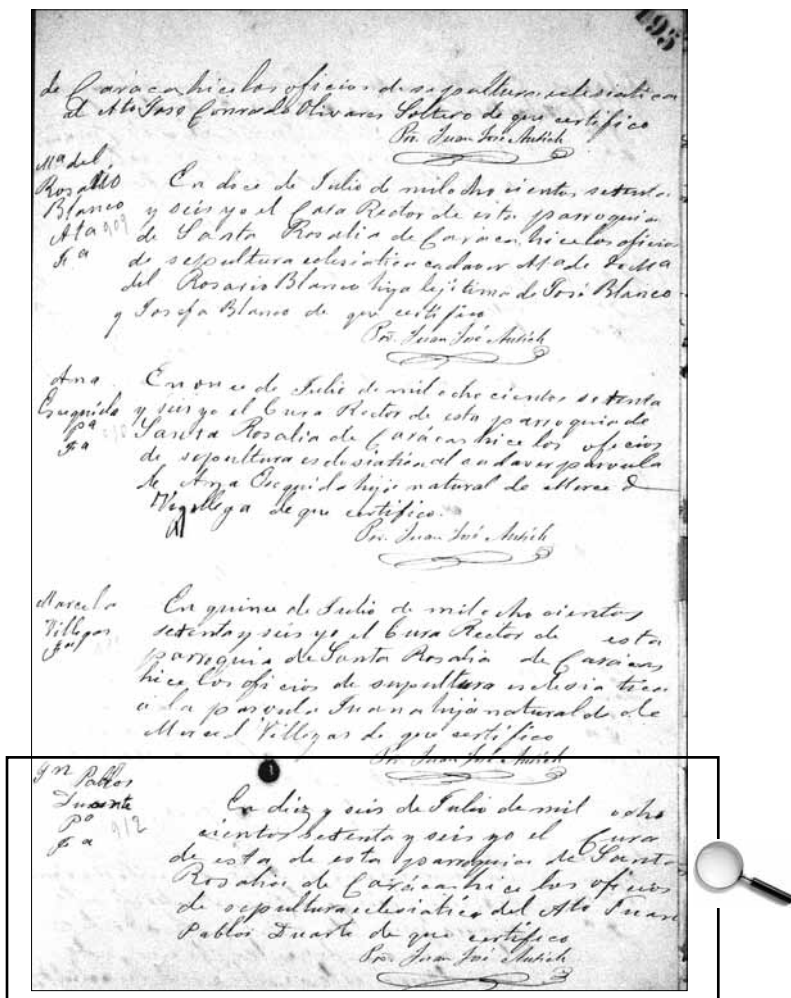 195
de Carácas hice los oficios de sepultura eclesiatica
al Ato Jose Conrado Olivares Soltero de que certifico
Por. Juan José Autich
Mª del
Rosario
Blanco
Ata 909
Fª
En doce de Julio de mil ocho cientos setenta
y seis yo el Cura Rector de esta parroquia
de Santa Rosalia de Carácas hice los oficios
de sepultura eclesiatica cadaver
del Rosario Blanco hija lejitima de José Blanco
y Josefa Blanco de que certifico
Por. Juan José Autich
Ana
Esequida
Pª
Fª
En once de Julio de mil ocho cientos setenta
y seis yo el Cura Rector de esta parroquia de
Santa Rosalia de Carácas hice los oficios
de sepultura al cadaver parvula
de Ana Esequida hija natural de
de que certifico.
Por. Juan José Autich
Marcela
Villegas
En quince de Julio de mil ocho cientos
setenta y seis yo el Cura Rector de esta
parroquia de Santa Rosalia de Carácas
hice los oficios de sepultura eclesiatica
a la parvula Juana hija natural de
Merced Villegas de que certifico
Por. Juan José Autich
Jn Pablos
Duarte
Pº 912
Fª
En diez y seis de Julio de mil ocho
cientos setenta y seis yo el Cura
de esta de esta parroquia de Santa
Rosalia de Carácas hice los oficios
de sepultura eclesiatica del Ato Juan
Pablos Duarte de que certifico
Por. Juan José Autich